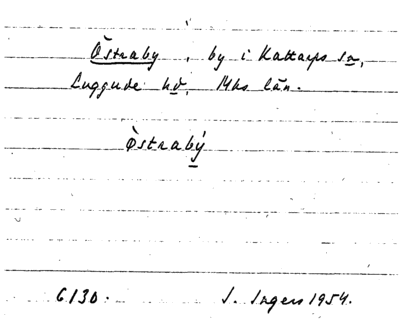 Östraby, by i Kattarps sn,
Luggude hd, Mhs län.
östrabý
6130. I. Ingers 1954.